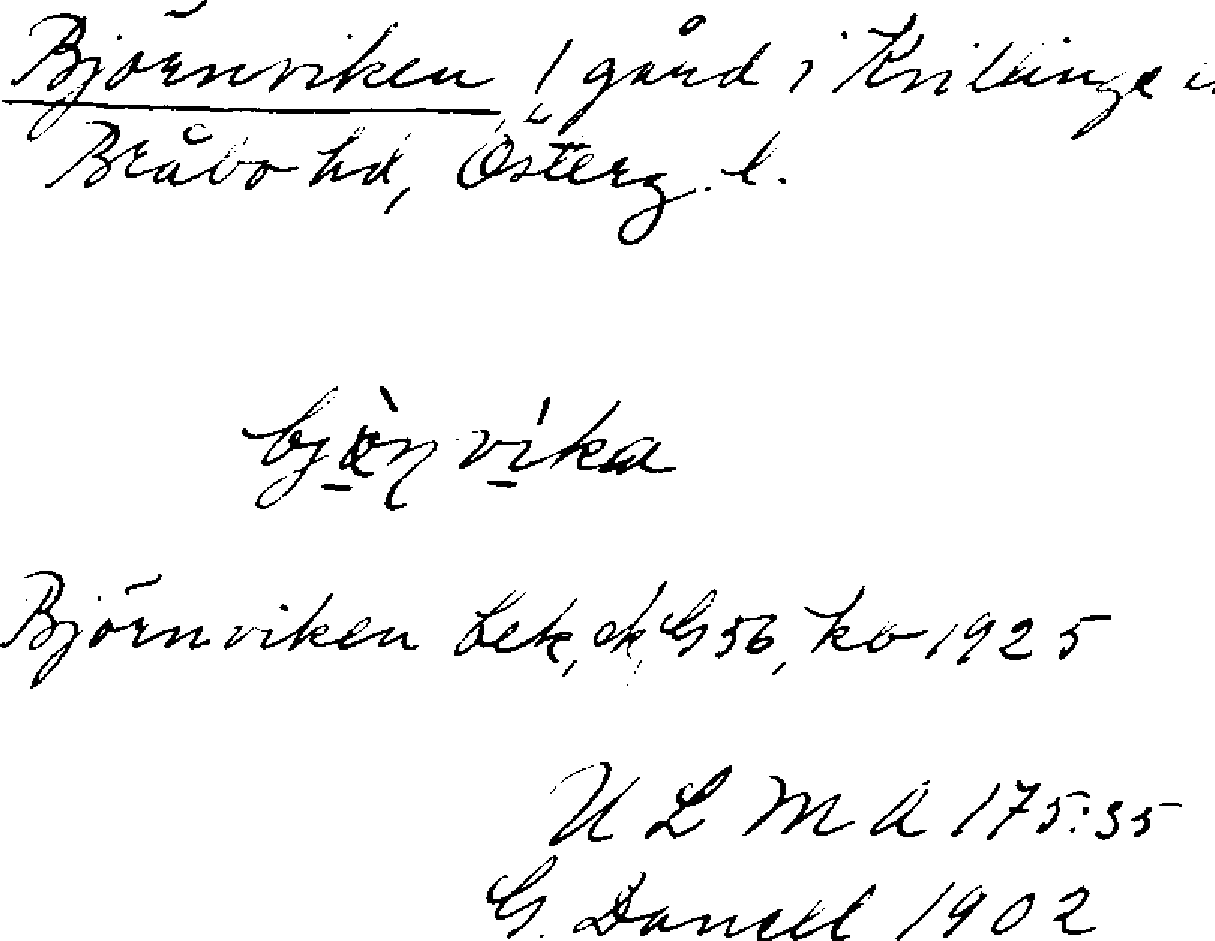 Björnviken, 1 gård i Kvillinge
Bråbo hd, Österg. l.
bjönvika
Björnviken Lek, ek, G 56, ko 1925
U L M A 175:35
G. Danell 1902